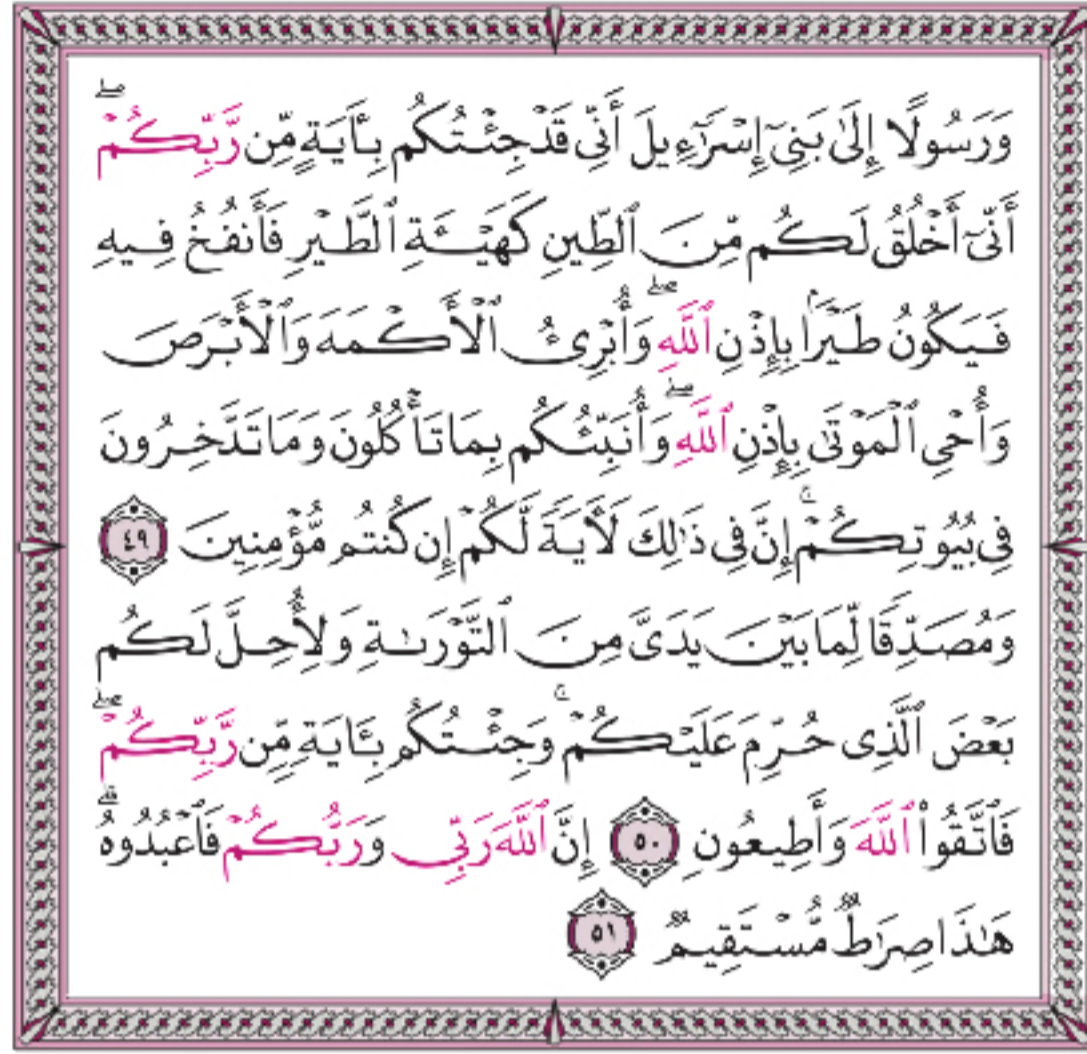 وَرَسُولًا إِلَىٰ بَنِىٓ إِسْرَٰٓءِيلَ أَنِّى قَدْ جِئْتُكُم بِـَٔايَةٍ مِّن رَّبِّكُمْ ۖ
أَنِّىٓ أَخْلُقُ لَكُم مِّنَ ٱلطِّينِ كَهَيْـَٔةِ ٱلطَّيْرِ فَأَنفُخُ فِيهِ
فَيَكُونُ طَيْرًۢا بِإِذْنِ ٱللَّهِ ۖ وَأُبْرِئُ ٱلْأَكْمَهَ وَٱلْأَبْرَصَ
وَأُحْىِ ٱلْمَوْتَىٰ بِإِذْنِ ٱللَّهِ ۖ وَأُنَبِّئُكُم بِمَا تَأْكُلُونَ وَمَا تَدَّخِرُونَ
فِى بُيُوتِكُمْ ۚ إِنَّ فِى ذَٰلِكَ لَـَٔايَةً لَّكُمْ إِن كُنتُم مُّؤْمِنِينَ ٤٩
وَمُصَدِّقًا لِّمَا بَيْنَ يَدَىَّ مِنَ ٱلتَّوْرَىٰةِ وَلِأُحِلَّ لَكُم
بَعْضَ ٱلَّذِى حُرِّمَ عَلَيْكُمْ ۚ وَجِئْتُكُم بِـَٔايَةٍ مِّن رَّبِّكُمْ ۖ
فَٱتَّقُوا۟ ٱللَّهَ وَأَطِيعُونِ ٥٠ إِنَّ ٱللَّهَ رَبِّى وَرَبُّكُمْ فَٱعْبُدُوهُ ۗ
هَٰذَا صِرَٰطٌ مُّسْتَقِيمٌ ٥١